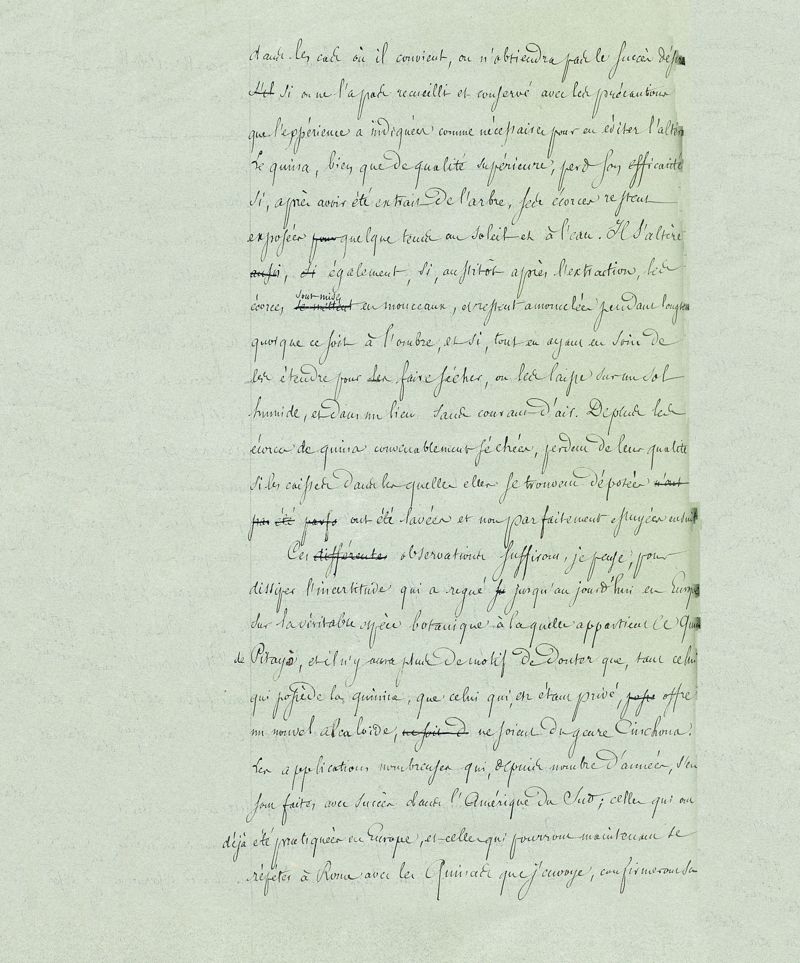 dans les cas où il convient, on n'obtiendra pas le succès désiré
s'il si on ne l'a pas recueilli et conservé avec les précautions
que l'expérience a indiquées comme nécessaires pour en éviter l'altér
Le quina, bien que de qualité supérieure, perd son efficacité
si, après avoir été extrait de l'arbre, ses écorces restent
exposées pour quelque temps au soleil et à l'eau. Il s'altère
aussi, si également, si, aussitôt après l'extraction, les
écorces se mettent sont mises en monceaux, et restent amoncelées pendant longtem
quoique ce soit à l'ombre, et si, tout en ayant eu soin de
les étendre pour les faire sécher, on les laisse sur un sol
humide, et dans un lieu sans courant d'air. De plus les
écorces de quina convenablement séchées, perdent de leur qualité
si les caisses dans lesquelles elles se trouvent déposées n'ont
pas été parfa ont été lavées et non parfaitement essuyées ensuite
Ces différentes observations suffiront, je pense, pour
dissiper l'incertitude qui a régné jusqu'au jourd'hui en Europe
sur la véritable espèce botanique à laquelle appartient le Quina
de Pitayò, et il n'y aura plus de motif de douter que, tant celui
qui possède la quinina, que celui qui, en étant privé, offre
un nouvel alcaloïde, ne soit d ne soient du genre Cinchona.
Les applications nombreuses qui, depuis nombre d'années, s'en
sont faites avec succès dans l'Amérique du Sud; celles qui ont
déjà été pratiquées en Europe, et celles qui pourront maintenant se
répéter à Rome avec les Quinas que j'envoye, confirmeront sa